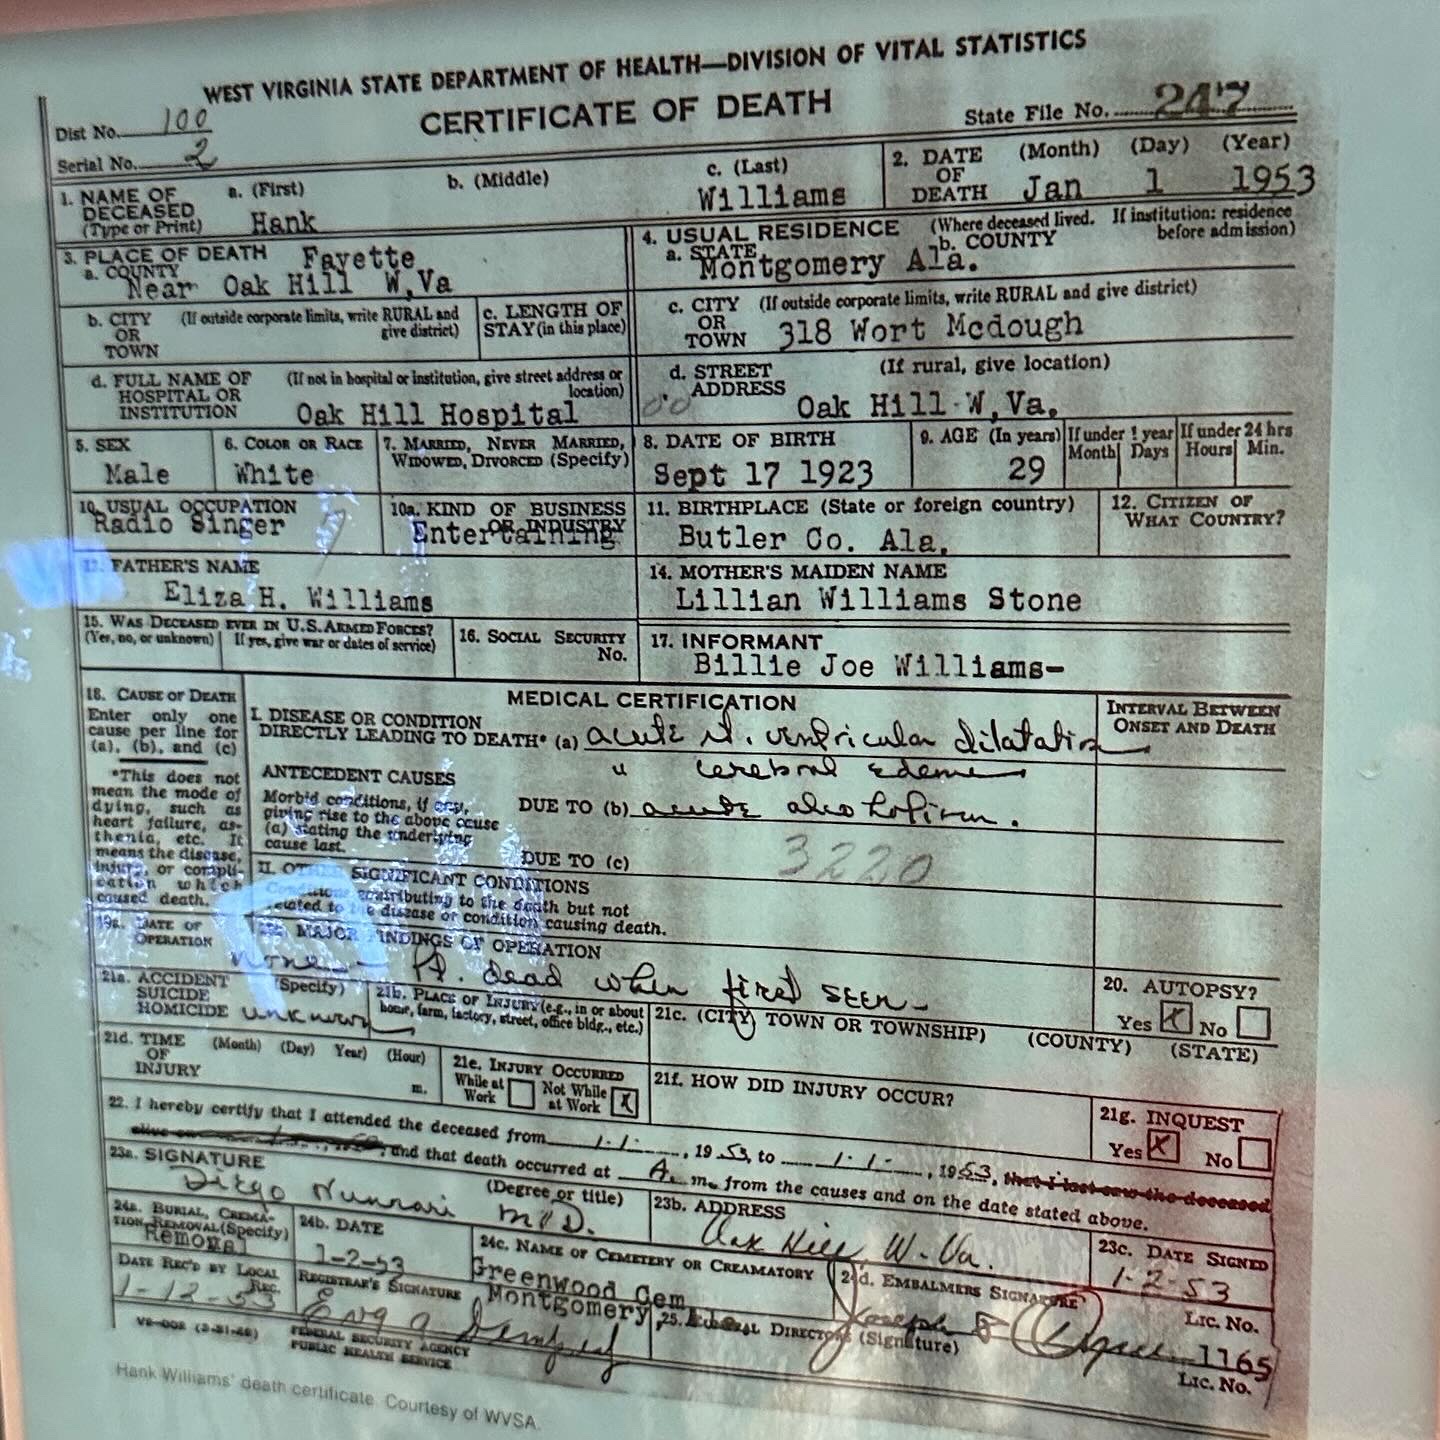 WEST VIRGINIA STATE DEPARTMENT OF HEALTH—DIVISION OF VITAL STATISTICS
CERTIFICATE OF DEATH
Dist No. 100
State File No. 247
Serial No. 2
1. NAME OF DECEASED (Type or Print) a. (First) Hank b. (Middle) c. (Last) Williams
2. DATE OF DEATH (Month) (Day) (Year) Jan 1 1953
3. PLACE OF DEATH Fayette
a. COUNTY Near Oak Hill W,Va
4. USUAL RESIDENCE (Where deceased lived. If institution: residence before admission)
a. STATE b. COUNTY
Montgomery Ala.
b. CITY OR TOWN (If outside corporate limits, write RURAL and give district)
c. LENGTH OF STAY (in this place)
c. CITY OR TOWN (If outside corporate limits, write RURAL and give district)
318 Wort Mcdough
d. FULL NAME OF HOSPITAL OR INSTITUTION (If not in hospital or institution, give street address or location)
Oak Hill Hospital
d. STREET ADDRESS (If rural, give location)
00 Oak Hill W,Va.
5. SEX Male
6. COLOR OR RACE White
7. MARRIED, NEVER MARRIED, WIDOWED, DIVORCED (Specify)
8. DATE OF BIRTH Sept 17 1923
9. AGE (In years) 29
If under 1 year Month Days
If under 24 hrs Hours Min.
10. USUAL OCCUPATION Radio Singer
10a. KIND OF BUSINESS OR INDUSTRY Entertaining
11. BIRTHPLACE (State or foreign country) Butler Co. Ala.
12. CITIZEN OF WHAT COUNTRY?
13. FATHER'S NAME Eliza H. Williams
14. MOTHER'S MAIDEN NAME Lillian Williams Stone
15. WAS DECEASED EVER IN U.S. ARMED FORCES?
(Yes, no, or unknown) If yes, give war or dates of service)
16. SOCIAL SECURITY No.
17. INFORMANT Billie Joe Williams-
18. CAUSE OF DEATH
Enter only one cause per line for (a), (b), and (c)
*This does not mean the mode of dying, such as heart failure, asthenia, etc. It means the disease, injury, or complication which caused death.
MEDICAL CERTIFICATION
INTERVAL BETWEEN ONSET AND DEATH
I. DISEASE OR CONDITION DIRECTLY LEADING TO DEATH* (a) acute rt. ventricular dilatation
" cerebral edema
ANTECEDENT CAUSES
Morbid conditions, if any, giving rise to the above cause (a) stating the underlying cause last.
DUE TO (b) acute alcoholism.
DUE TO (c)
3220
II. OTHER SIGNIFICANT CONDITIONS
Conditions contributing to the death but not related to the disease or condition causing death.
19a. DATE OF OPERATION
19b. MAJOR FINDINGS OF OPERATION
none - Pt. dead when first seen-
20. AUTOPSY?
Yes X No
21a. ACCIDENT SUICIDE HOMICIDE (Specify) unknown
21b. PLACE OF INJURY (e.g., in or about home, farm, factory, street, office bldg., etc.)
21c. (CITY, TOWN OR TOWNSHIP) (COUNTY) (STATE)
21d. TIME OF INJURY (Month) (Day) Year) (Hour) m.
21e. INJURY OCCURRED
While at Work Not While at Work X
21f. HOW DID INJURY OCCUR?
21g. INQUEST
Yes X No
22. I hereby certify that I attended the deceased from 1-1-, 1953, to 1-1-, 1953, that I last saw the deceased
alive on and that death occurred at A. m. from the causes and on the date stated above.
23a. SIGNATURE (Degree or title)
Diego Nunnari M.D.
23b. ADDRESS Oak Hill W-Va.
23c. DATE SIGNED 1-2-53
24a. BURIAL, CREMATION REMOVAL (Specify) Removal
24b. DATE 1-2-53
24c. NAME OF CEMETERY OR CREAMATORY
Greenwood Cem
Montgomery, Ala.
24d. EMBALMERS SIGNATURE
Lic. No.
DATE REC'D BY LOCAL REG. 1-12-53
REGISTRAR'S SIGNATURE
25. FUNERAL DIRECTORS (Signature)
Joseph
1165
Lic. No.
FEDERAL SECURITY AGENCY
PUBLIC HEALTH SERVICE
Hank Williams' death certificate. Courtesy of WVSA.